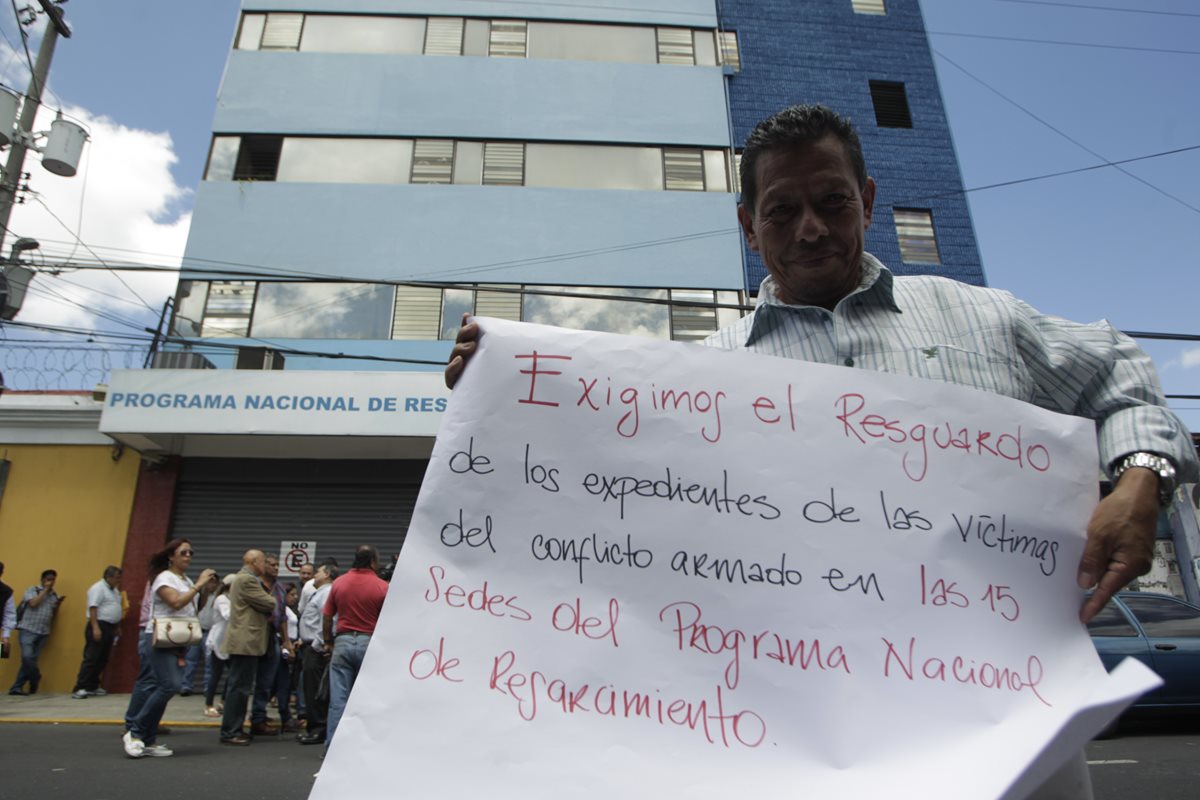 PROGRAMA NACIONAL DE RES
NO
E
Exigimos el Resguardo
de los expedientes de las víctimas
del conflicto armado en las 15
Sedes del Programa Nacional
de Resarcimiento.